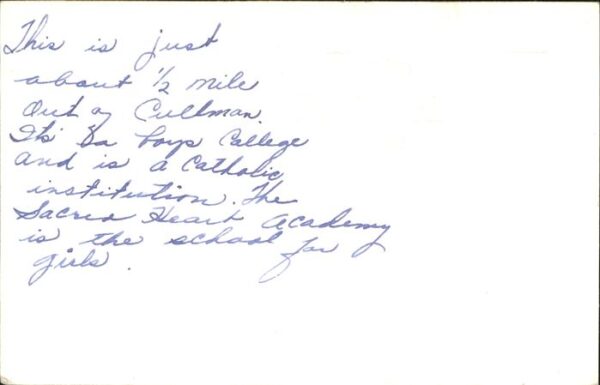 This is just
about 1/2 mile
Out of Cullman.
Its a boys College
and is a Catholic
institution. The
Sacred Heart Academy
is the school for
girls.